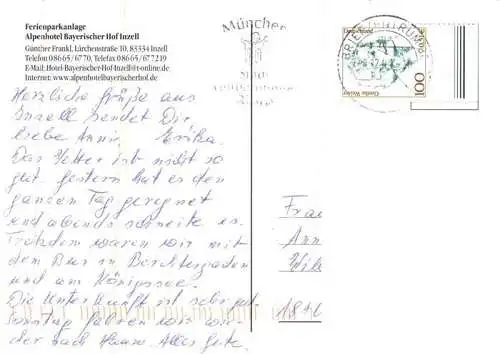 Ferienparkanlage
Alpenhotel Bayerischer Hof Inzell
Günther Frankl, Lärchenstraße 10, 83334 Inzell
Telefon 08665/6770, Telefax 08665/677219
E-Mail: Hotel-Bayerischer-Hof-Inzell@t-online.de
Internet: www.alpenhotelbayerischerhof.de
Herzliche Grüße aus
Inzell sendet Dir
liebe Annie Erika.
Das Wetter ist nicht so
gut gestern hat es den
ganzen Tag geregnet
und abends schneite es.
Trotzdem waren wir mit
dem Bus in Berchtesgaden
und am Königssee.
Die Unterkunft ist sehr gut.
Sonntag fahren wir wie-
der nach Hause. Alles Gute.
München
Deutschland
100
BRIEFZENTRUM
Frau
Ann